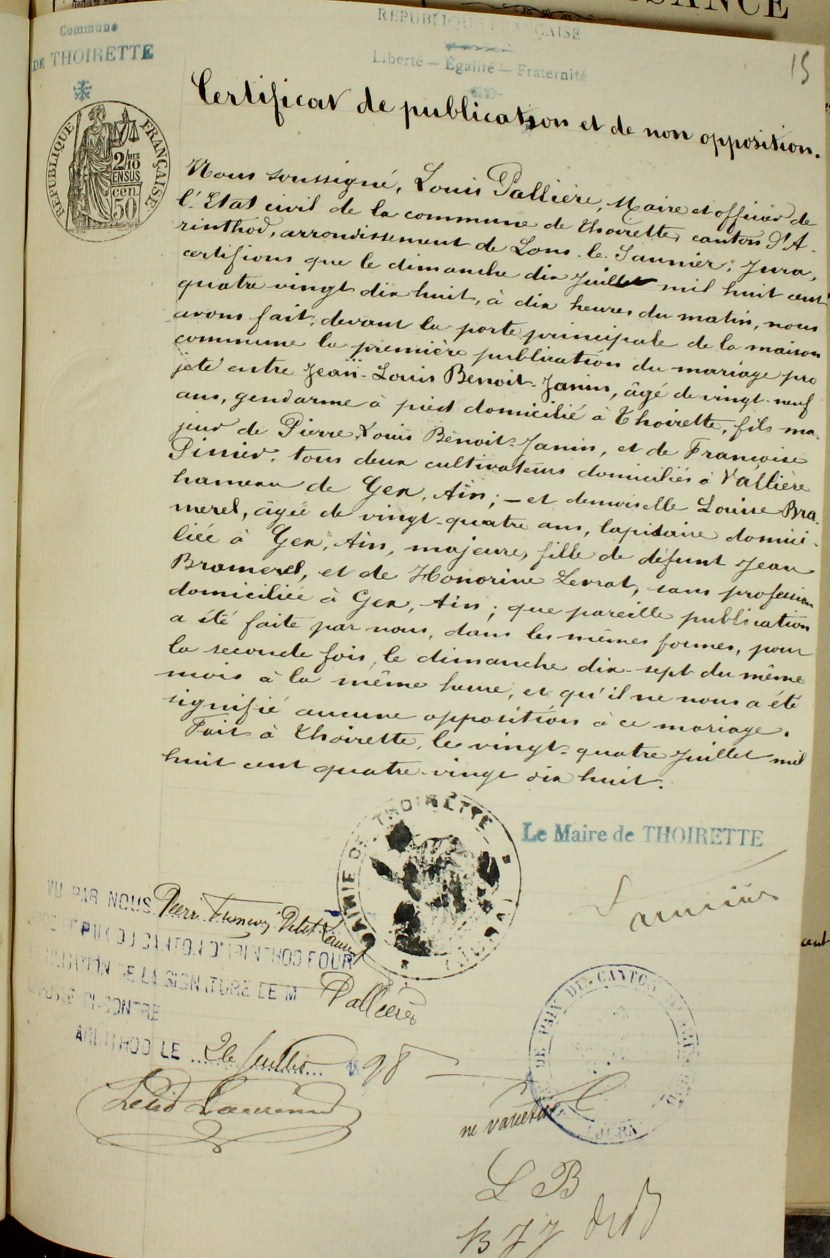 SANCE
Commune
DE THOIRETTE
RÉPUBLIQUE FRANÇAISE
Liberté — Égalité — Fraternité
15
RÉPUBLIQUE FRANÇAISE
2/10
EN SUS
50 cen.
Certificat de publication et de non opposition.
Nous soussigné, Louis Pallière, Maire et officier de
l'Etat civil de la commune de Thoirette, canton d'A-
rinthod, arrondissement de Lons-le-Saunier, Jura,
certifions que le dimanche dix Juillet mil huit cent
quatre vingt dix huit, à dix heures du matin, nous
avons fait, devant la porte principale de la maison
commune la première publication du mariage pro
jeté entre Jean-Louis Benoit-Janin, âgé de vingt-neuf
ans, gendarme à pied domicilié à Thoirette, fils ma-
jeur de Pierre Louis Benoit-Janin, et de Françoise
tous deux cultivateurs domiciliés à Vallière
hameau de Gex, Ain; — et demoiselle Louise Bra-
merel, âgée de vingt-quatre ans, lapidaire domici-
liée à Gex, Ain, majeure, fille de défunt Jean
Bramerel, et de Honorine Levrat, sans profession
domiciliée à Gex, Ain; que pareille publication
a été faite par nous, dans les mêmes formes, pour
la seconde fois, le dimanche dix-sept du même
mois à la même heure, et qu'il ne nous a été
signifié aucune opposition à ce mariage.
Fait à Thoirette, le vingt-quatre Juillet mil
huit cent quatre-vingt dix huit.
MAIRIE DE THOIRETTE (JURA)
Le Maire de THOIRETTE
VU PAR NOUS
DE PAIX DU CANTON D'ARINTHOD POUR
DE LA SIGNATURE DE M Pallière
CI-CONTRE
ARINTHOD LE 26 Juillet 98
DE PAIX DU CANTON
JURA
ne varietur
L B
B J J